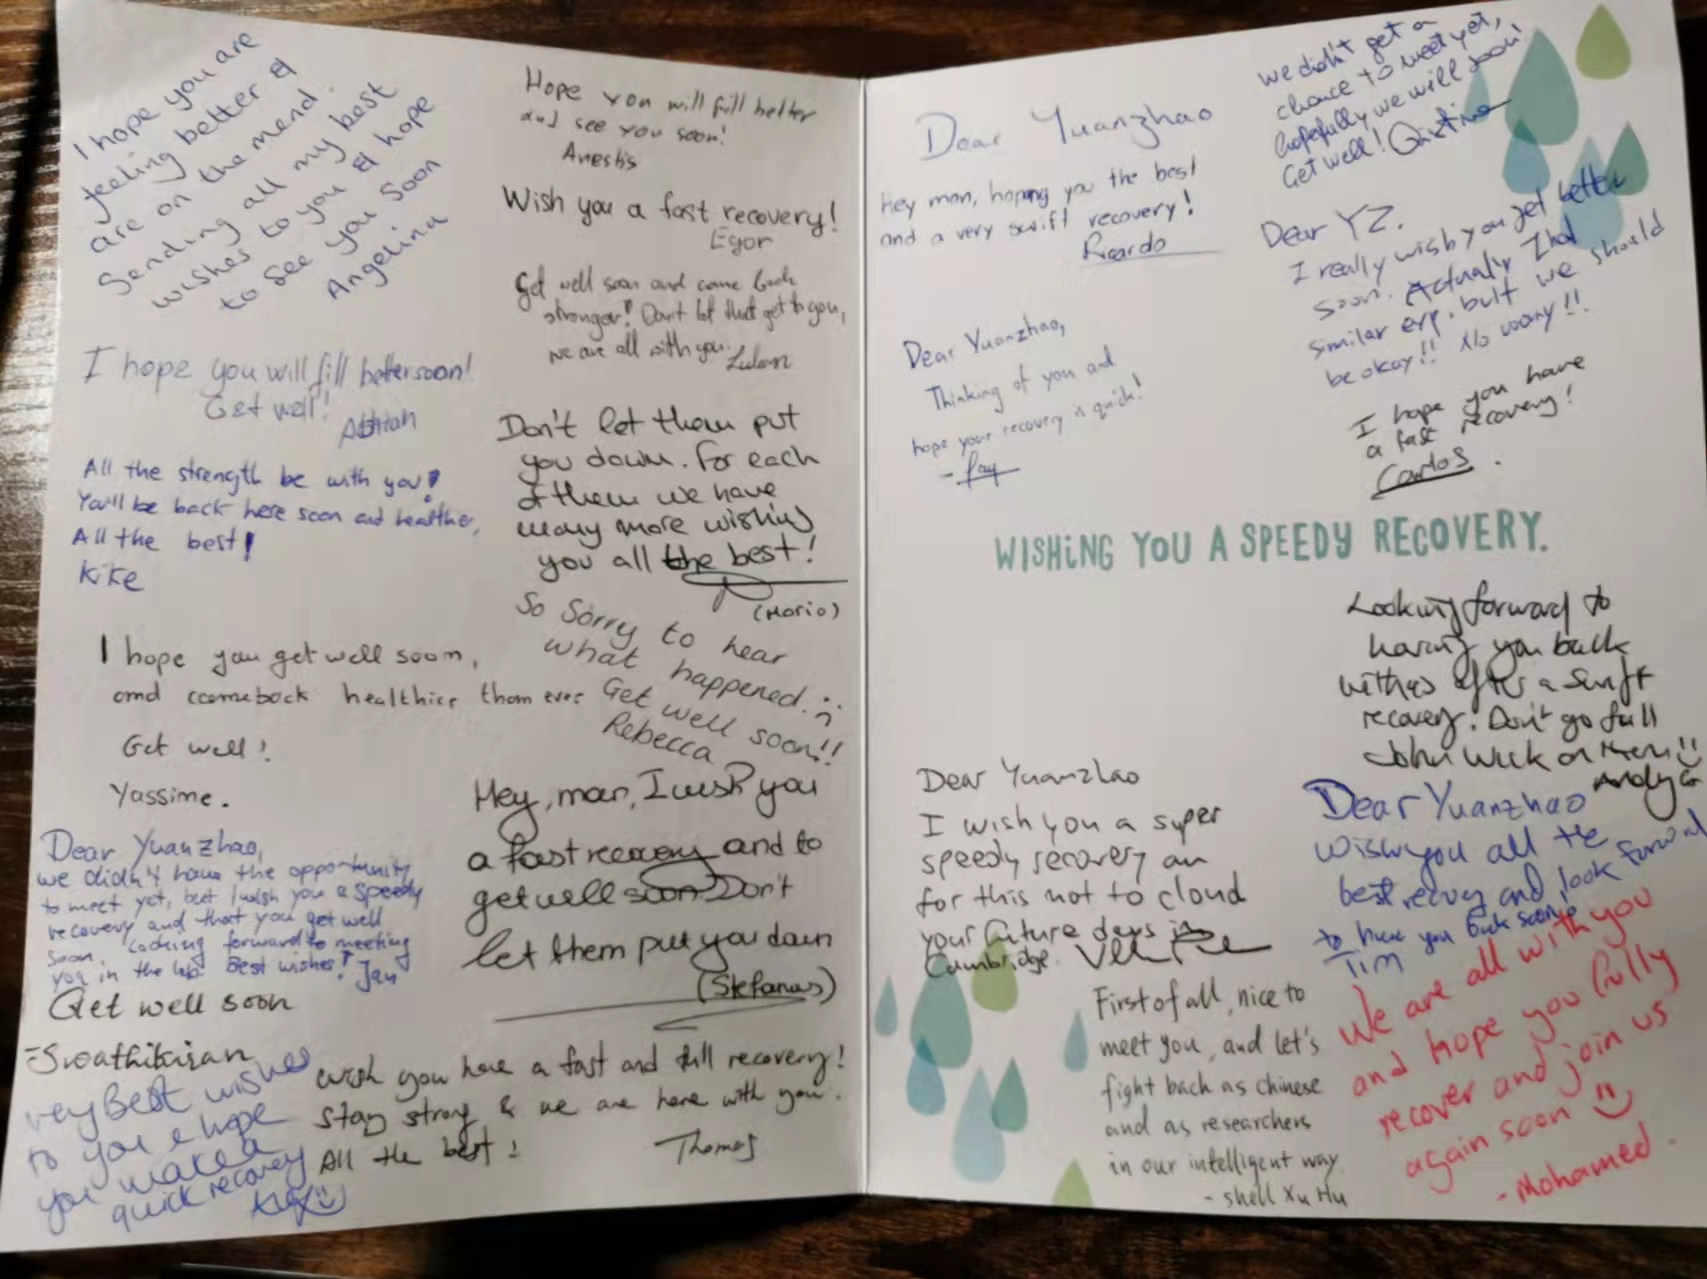 I hope you are
feeling better &
are on the mend.
Sending all my best
wishes to you & hope
to see you soon
Angelina
I hope you will fill better soon!
Get well!
All the strength be with you!
You'll be back here soon and healthier,
All the best!
Kike
I hope you get well soon,
and comeback healthier than ever
Get well!
Yassime.
Dear Yuanzhao,
we didn't have the opportunity
to meet yet, but I wish you a speedy
recovery and that you get well
soon. Looking forward to meeting
you in the lab. Best wishes! Jan
Get well soon
-Swathikiran
very Best wishes
to you & hope
you make a
quick recovery
Hope you will fill better
and see you soon!
Anestis
Wish you a fast recovery!
Egor
Get well soon and come back
stronger! Don't let that get to you,
we are all with you.
Don't let them put
you down. For each
of them we have
many more wishing
you all the best!
(Mario)
So Sorry to hear
what happened. :(
Get well soon!!
Rebecca
Hey, man, I wish you
a fast recovery and to
get well soon. Don't
let them put you down
(Stefanos)
Wish you have a fast and full recovery!
Stay strong & we are here with you.
All the best!
Thomas
Dear Yuanzhao
Hey man, hoping you the best
and a very swift recovery!
Ricardo
Dear Yuanzhao,
Thinking of you and
hope your recovery is quick!
we didn't get a
chance to meet yet,
hopefully we will soon!
Get well!
Dear YZ.
I really wish you get better
soon. Actually I had
similar exp. but we should
be okay!! No worry!!
I hope you have
a fast recovery!
Carlos.
WISHING YOU A SPEEDY RECOVERY.
Looking forward to
having you back
with us after a swift
recovery. Don't go full
John Wick on them :)
Dear Yuanzhao
I wish you a super
speedy recovery an
for this not to cloud
your future days in
Cambridge.
Dear Yuanzhao
wish you all the
best recovery and look forward
to have you back soon!
Tim
First of all, nice to
meet you, and let's
fight back as chinese
and as researchers
in our intelligent way
- shell Xu Hu
We are all with you
and hope you fully
recover and join us
again soon :)
- Mohamed.